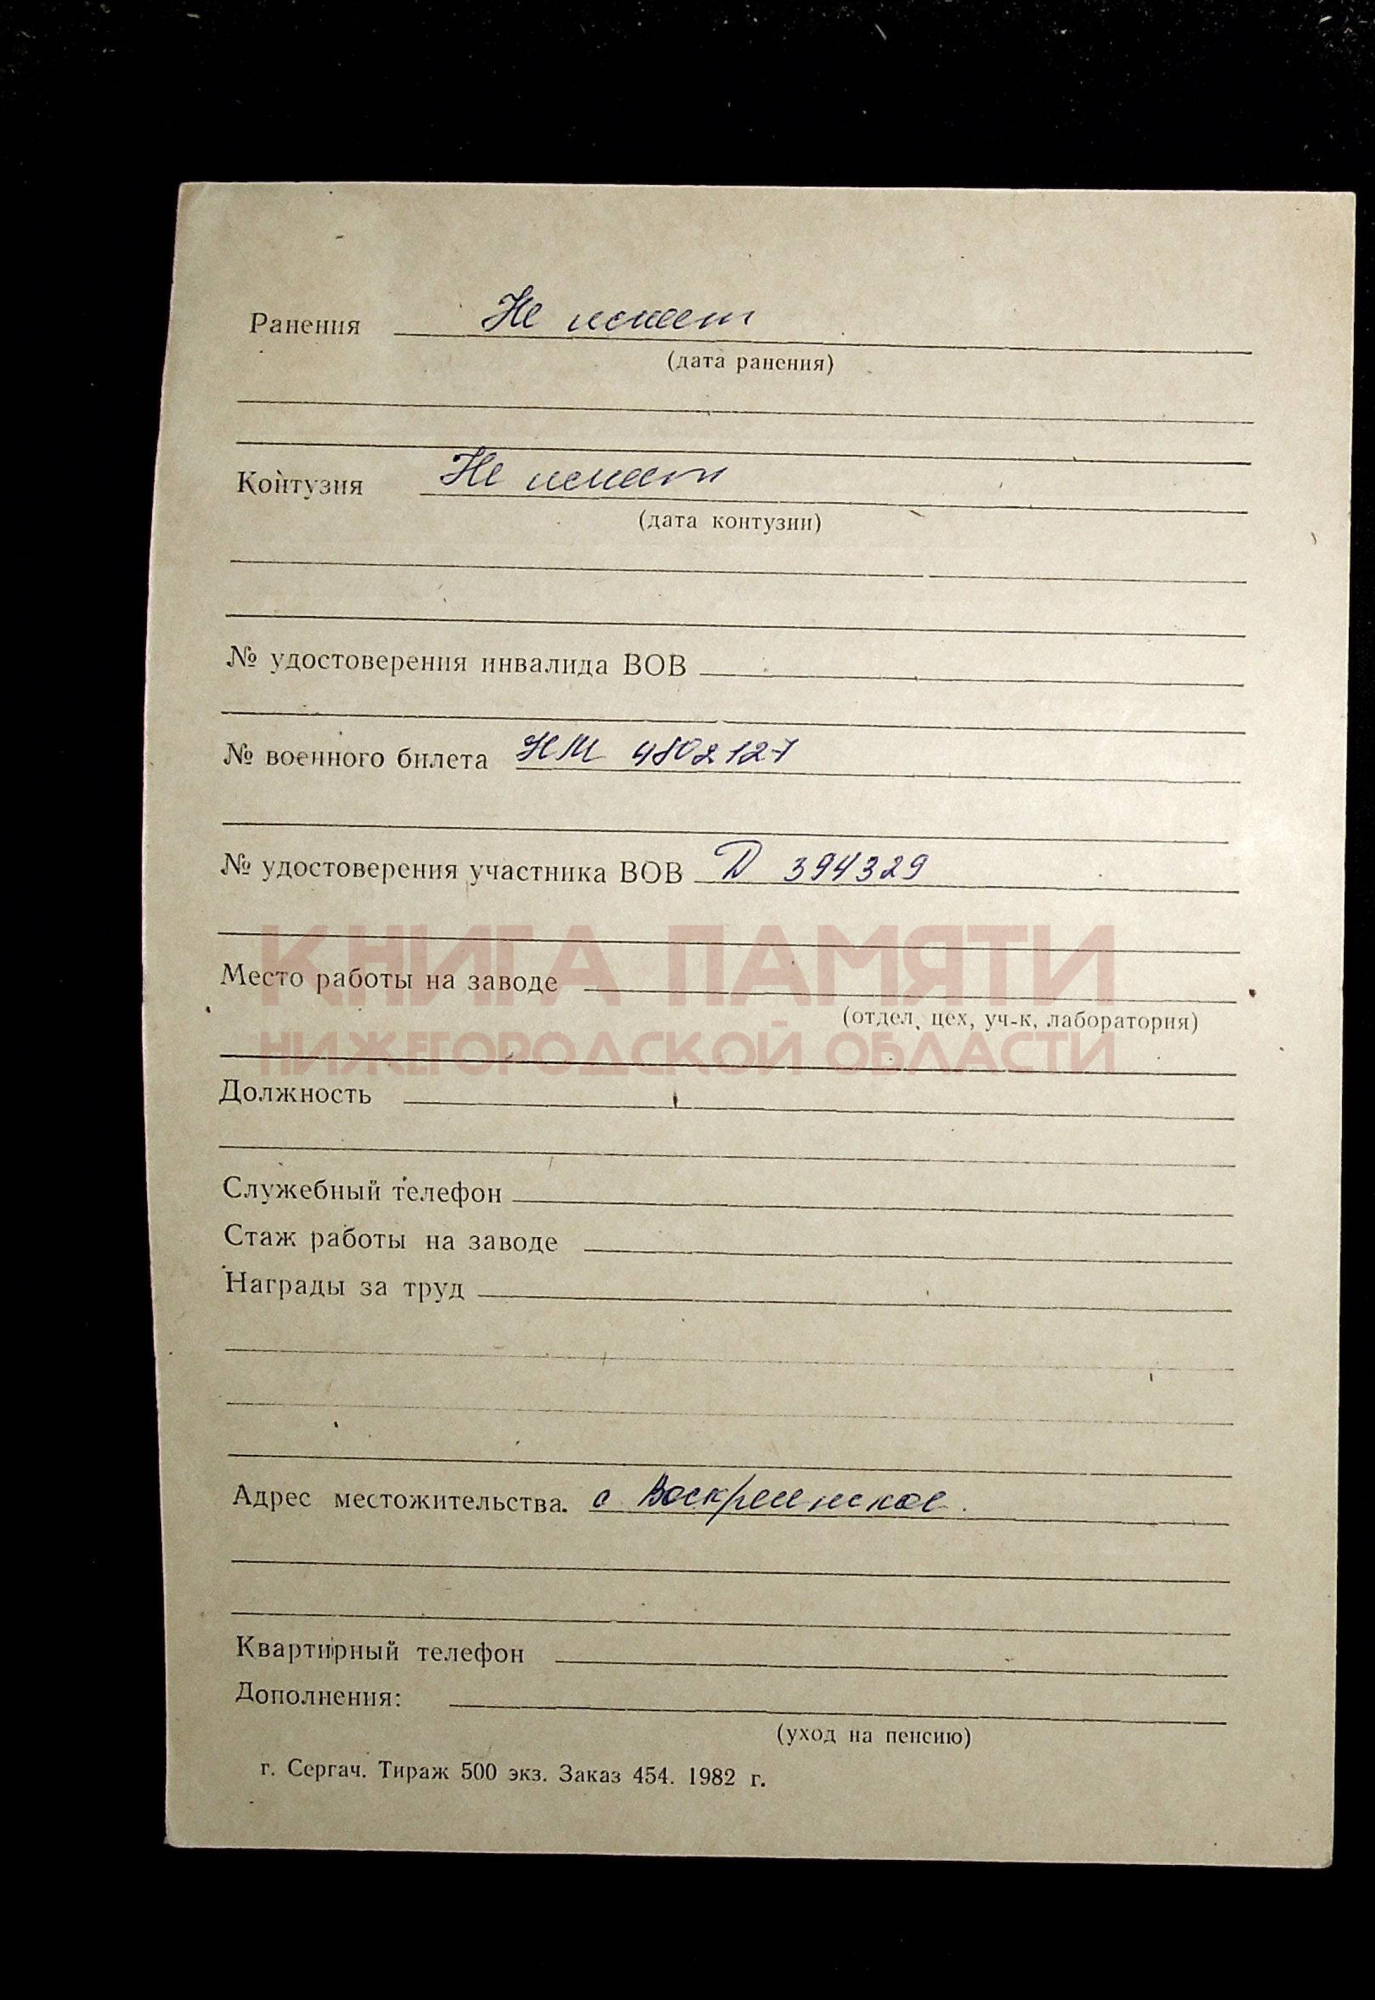 Ранения Не имеет
(дата ранения)
Контузия Не имеет
(дата контузии)
№ удостоверения инвалида ВОВ
№ военного билета НМ 4802127
№ удостоверения участника ВОВ Д 394329
КНИГА ПАМЯТИ
Место работы на заводе
(отдел, цех, уч-к, лаборатория)
НИЖЕГОРОДСКОЙ ОБЛАСТИ
Должность
Служебный телефон
Стаж работы на заводе
Награды за труд
Адрес местожительства. с Воскресенское.
Квартирный телефон
Дополнения:
(уход на пенсию)
г. Сергач. Тираж 500 экз. Заказ 454. 1982 г.